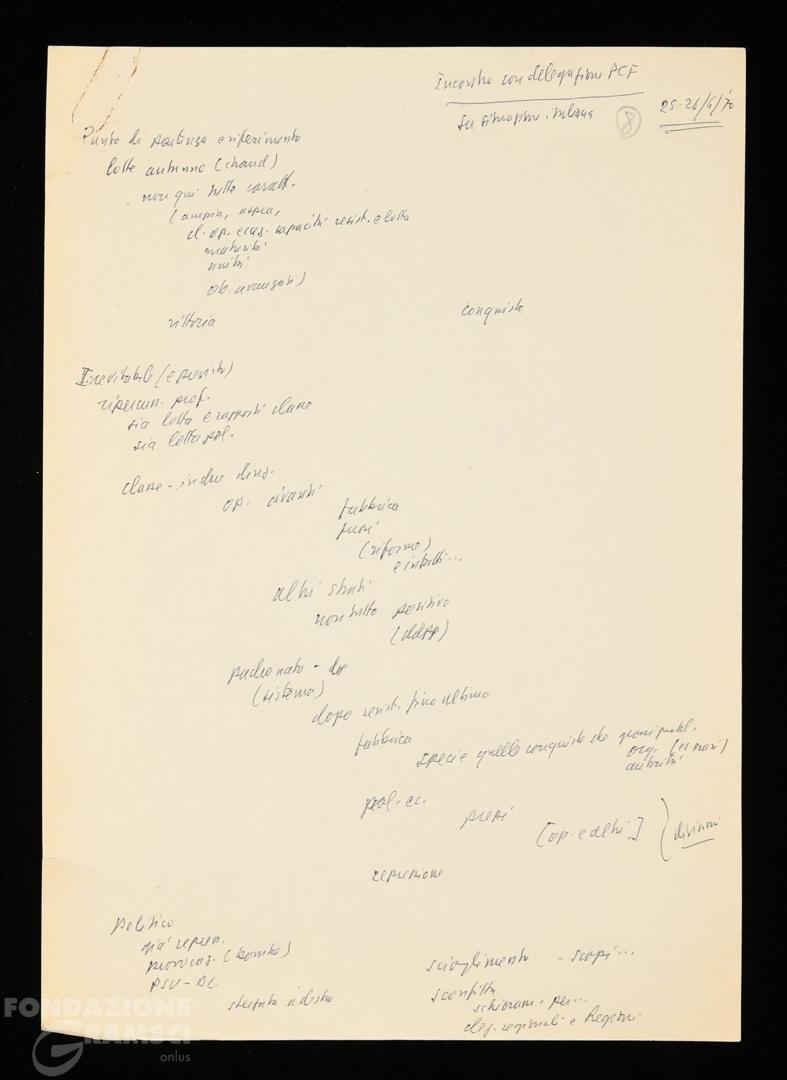 Incontro con delegazione PCF
su situazione italiana
8
25-26/6/70
Punto di partenza e riferimento
lotte autunno (chaud)
non qui tutte caratt.
(ampia, aspra,
cl. op. ecc. capacità resist. e lotta
maturità
unità
ob. avanzati)
vittoria
conquiste
Inevitabile (e previsto)
ripercuss. prof.
sia lotta e rapporti classe
sia lotta pol.
classe - in due direz.
op. avanti
fabbrica
fuori
(riforme)
e intell...
altri strati
non tutto positivo
padronato -
(sistema)
dopo resist. fino ultimo
fabbrica
specie quelle conquiste che
org. (es. orari)
autorità
pol-ec.
prezzi
[op. e altri]
divisioni
repressione
Politico
già repress.
provocaz. (bombe)
PSU - DC
sterzata a destra
scioglimento - scopi...
sconfitta
schieram. per...
elez. regionali e Regioni
FONDAZIONE
GRAMSCI
onlus